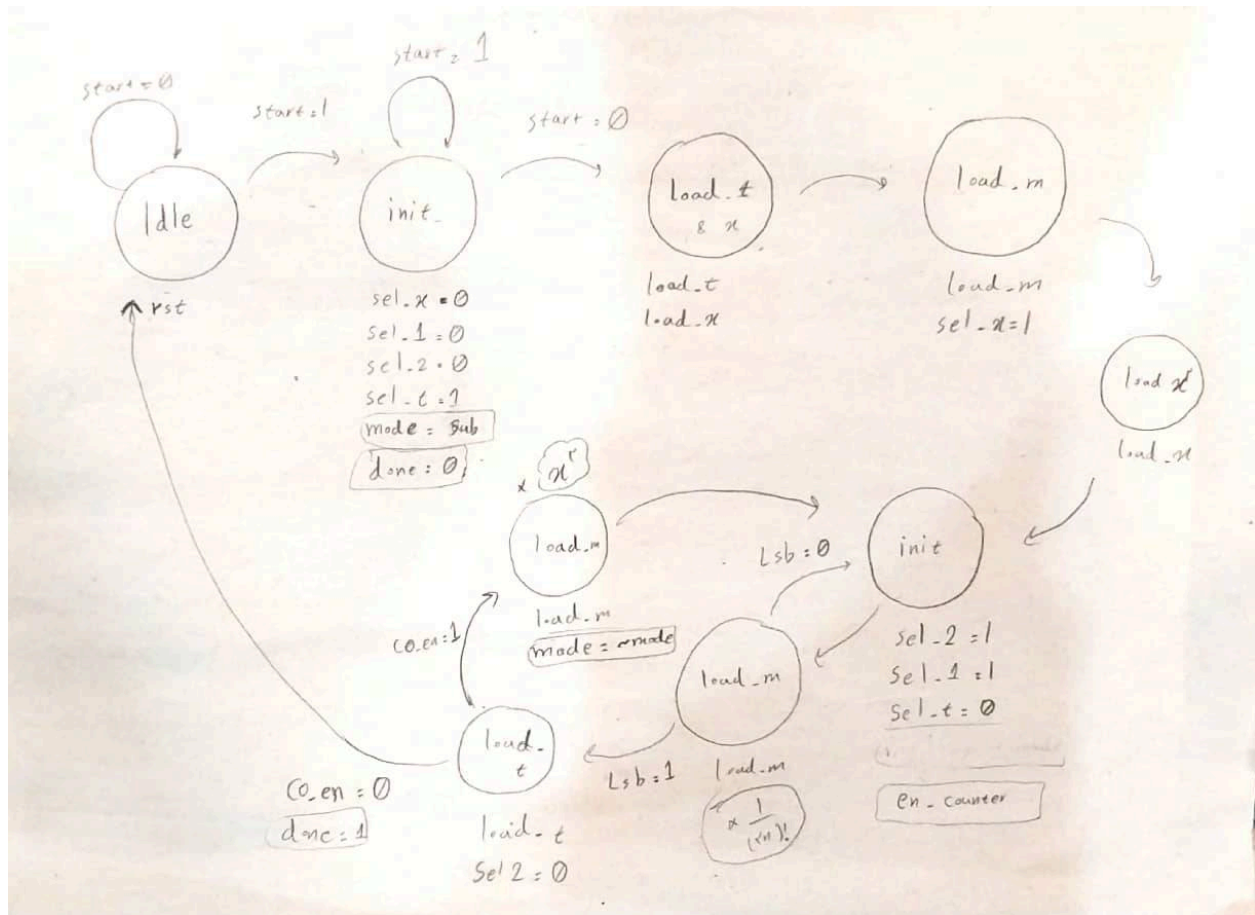 start = 0
start = 1
start = 1
start = 0
Idle
init_
load_t
& x
load_m
rst
sel_x = 0
sel_1 = 0
sel_2 = 0
sel_t = 1
mode = sub
done = 0
load_t
load_x
load_m
sel_x = 1
load x²
load_x
× x²
load_m
load_m
mode = ~mode
co_en = 1
Lsb = 0
init
sel_2 = 1
sel_1 = 1
sel_t = 0
en_counter
load_m
Lsb = 1
load_m
× 1/(2n)!
load_
t
load_t
Sel 2 = 0
co_en = 0
done = 1